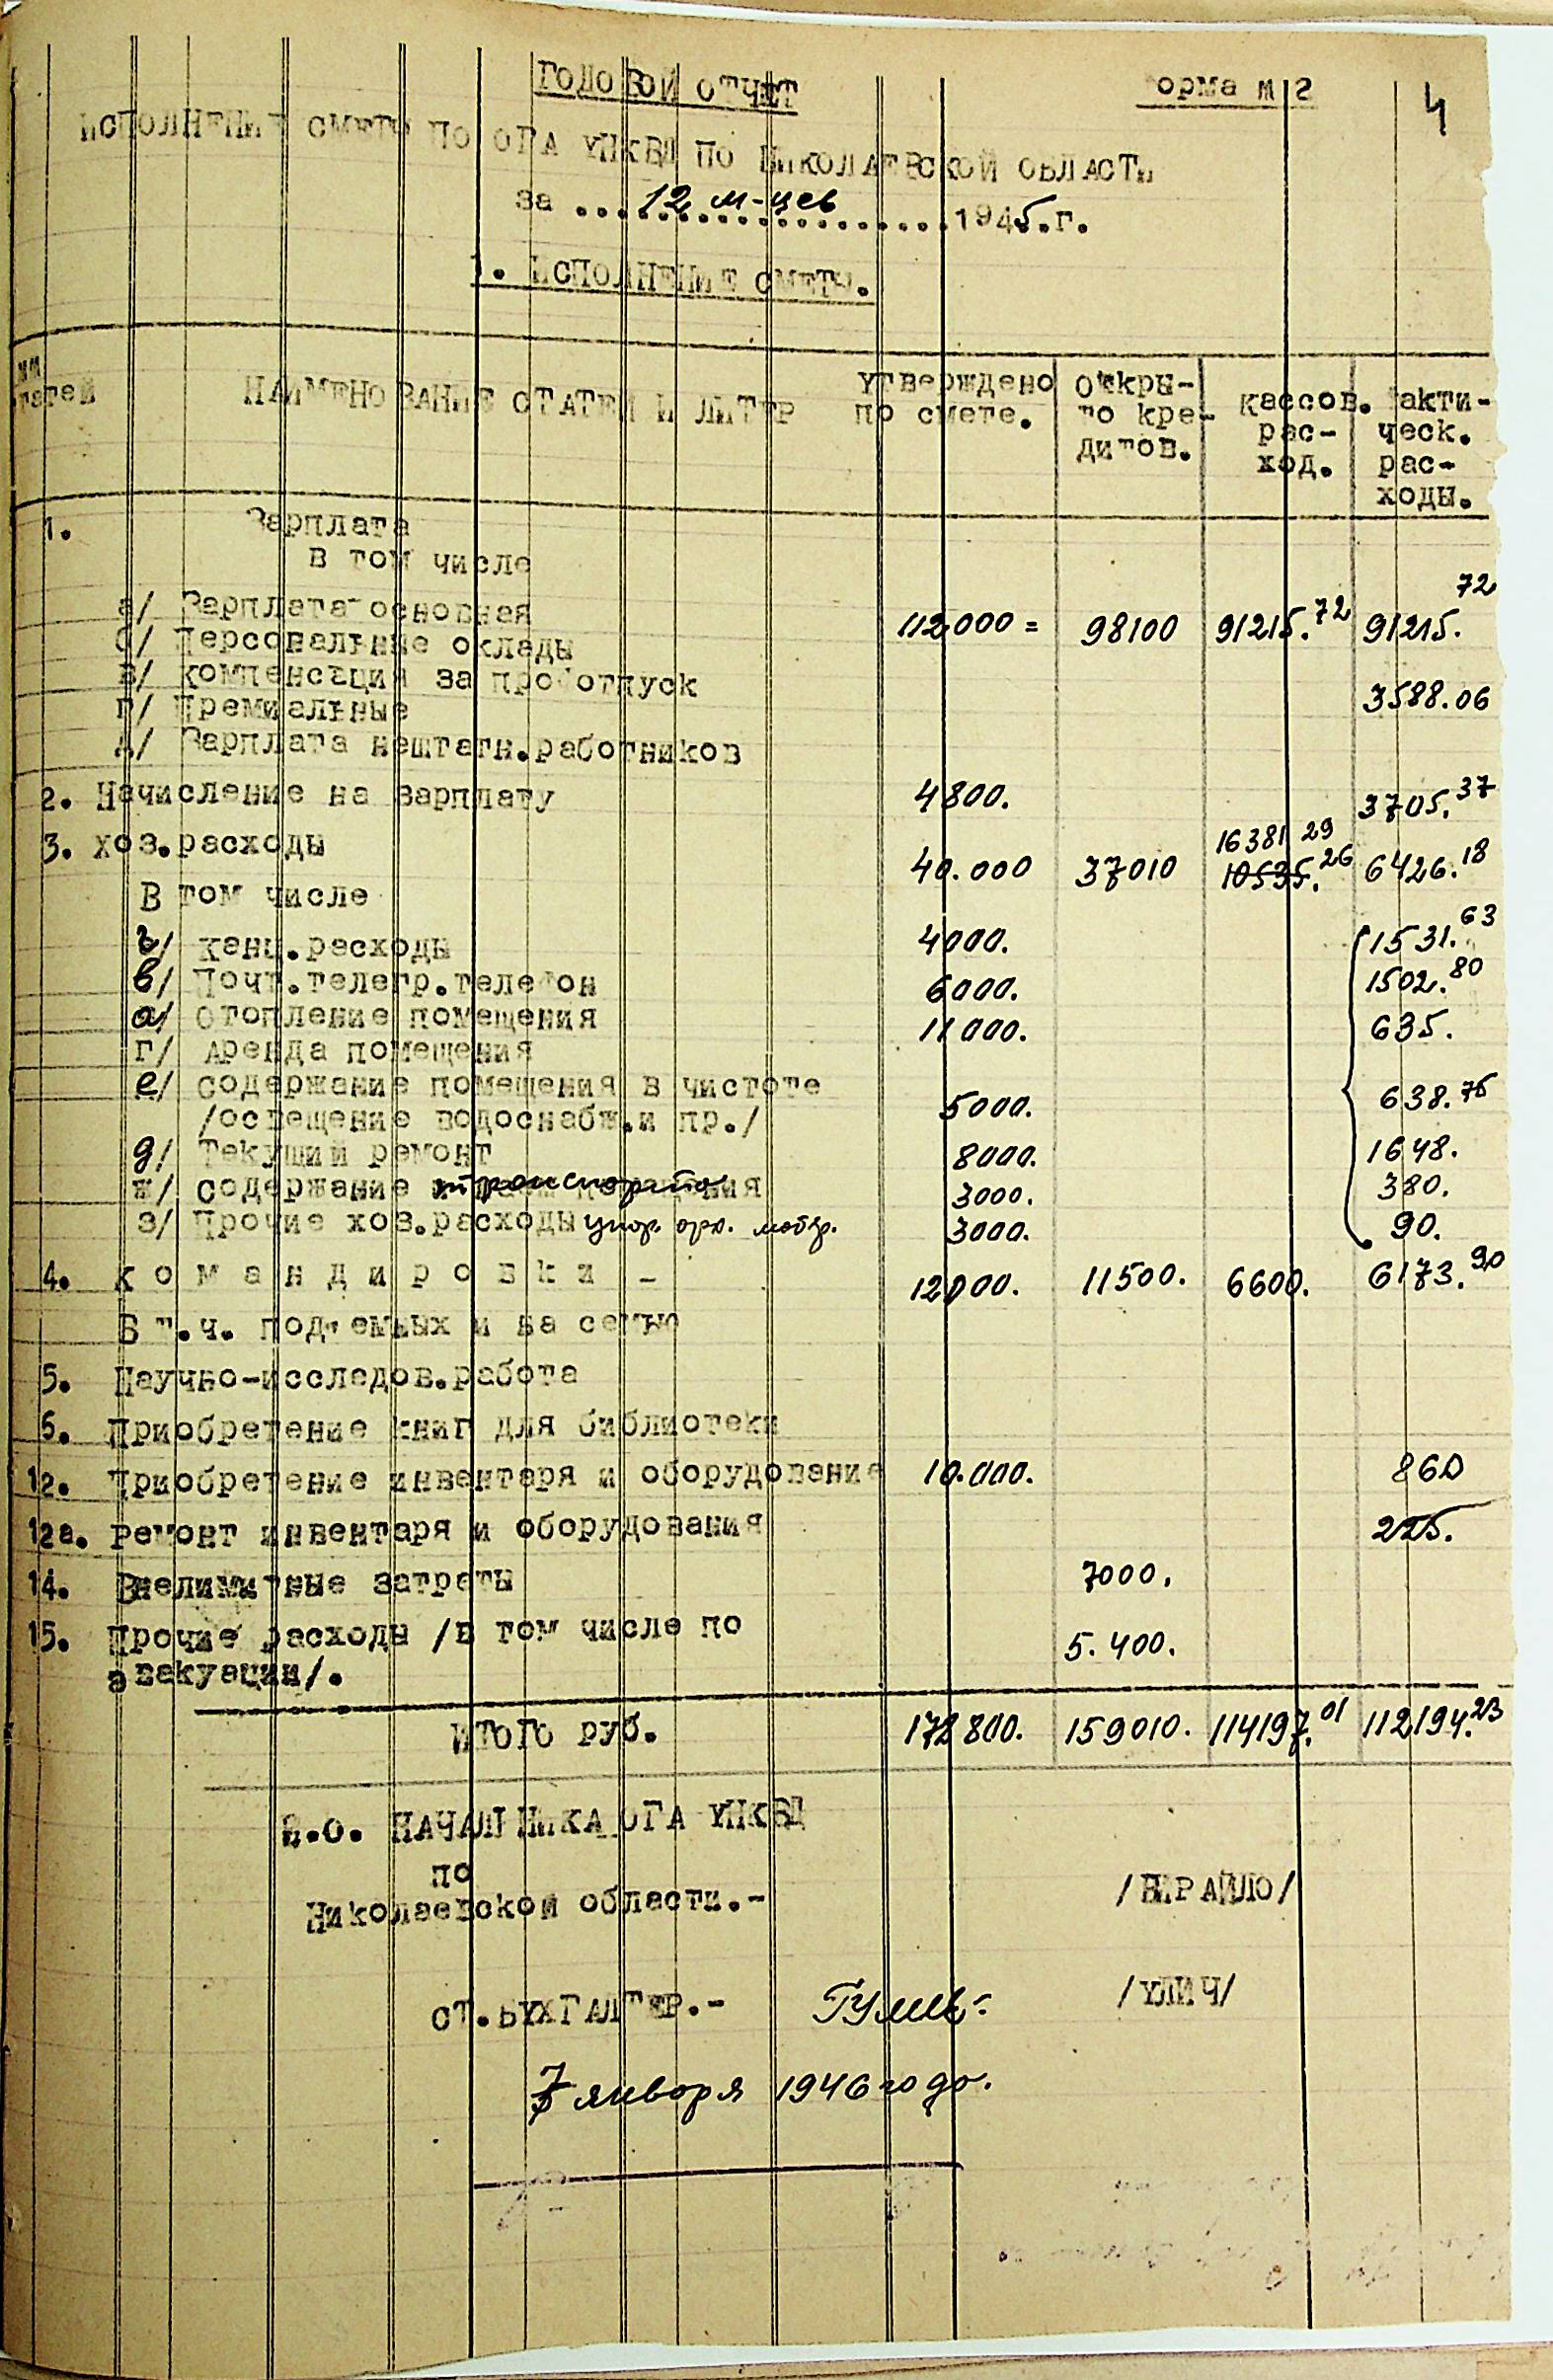 4
ГОДОВОЙ ОТЧЕТ орма № 2
ИСПОЛНЕНИЕ СМЕТЫ ПО ОГА УНКВД ПО НИКОЛАЕВСКОЙ ОБЛАСТИ
за ... 12 м-цев ... 1945.г.
1. ИСПОЛНЕНИЕ СМЕТЫ.
№№ татей НАИМЕНОВАНИЕ СТАТЕЙ И ЛИТЕР Утверждено по смете. Откры-то кре-дитов. Кассов. рас-ход. Факти-ческ. рас-ходы.
1. Зарплата
В том числе
а/ Зарплата основная 112000= 98100 91215.72 91215.72
б/ Персональные оклады
в/ компенсация за проботпуск 3588.06
г/ Премиальные
д/ Зарплата нештатн.работников
2. Начисление на зарплату 4800. 3705.37
3. Хоз.расходы 40.000 37010 16381 29 10535.26 6426.18
В том числе
б/ канц.расходы 4000. 1531.63
в/ Почт.телегр.телефон 6000. 1502.80
а/ Отопление помещения 11000. 635.
г/ Аренда помещения
е/ содержание помещения в чистоте
/освещение водоснабж.и пр./ 5000. 638.75
д/ Текущий ремонт 8000. 1648.
ж/ содержание транспорта 3000. 380.
з/ Прочие хоз.расходы упор. арх. матер. 3000. 90.
4. к о м а н д и р о в к и - 12000. 11500. 6600. 6173.90
В т.ч. подъемных и на семью
5. Научно-исследов.работа
6. Приобретение книг для библиотеки
12. Приобретение инвентаря и оборудование 10.000. 860
12а. Ремонт инвентаря и оборудования 225.
14. Внелимитные затраты 7000.
15. Прочие расходы /в том числе по 5.400.
эвакуации/.
ИТОГО руб. 178800. 159010. 114197.01 112194.23
И.о. НАЧАЛЬНИКА ОГА УНКВД
по
Николаевской области.- /ШРАЙЛО/
СТ.БУХГАЛТЕР.- /УЛИЧ/
7 января 1946 года.